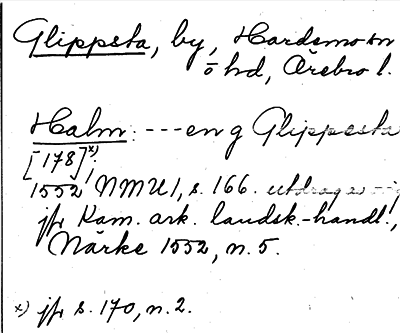 Glippsta, by, Hardemo sn
ö hd, Örebro l.
Halm: --- en g Glippesta
[178]x)
1552 NMU 1, s. 166. utdrag
jfr Kam. ark. landsk.-handl.,
Närke 1552, n. 5.
x) jfr s. 170, n. 2.